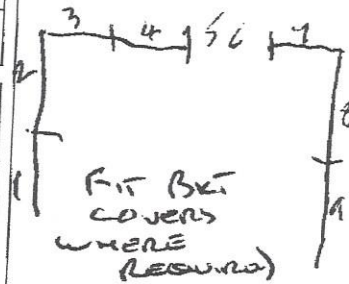 3 4 5 6 7
2 8
1 9
FIT BKT
COVERS
WHERE
REQUIRED)